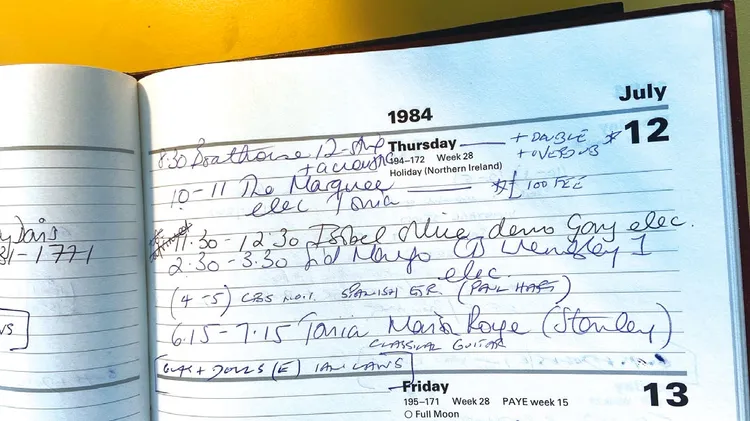 1984
July
12
Thursday
194–172 Week 28
Holiday (Northern Ireland)
8.30 Boathouse 12-string
+ acoustic
+ DOUBLE
+ OVERDUB
10-11 The Marquee
elec Tonia
* £100 FEE
11.30 - 12.30 Isobel demo Gary elec.
2.30 - 3.30 CD Wembley 1
elec.
(4-5) CBS NO.1. SPANISH GTR. (PAUL HART)
6.15 - 7.15 Tonia Maria Roye (Stanley)
CLASSICAL GUITAR
GUYS + DOLLS (E) IAN LAWS
Friday
13
195–171 Week 28 PAYE week 15
Full Moon
31-1771
WS